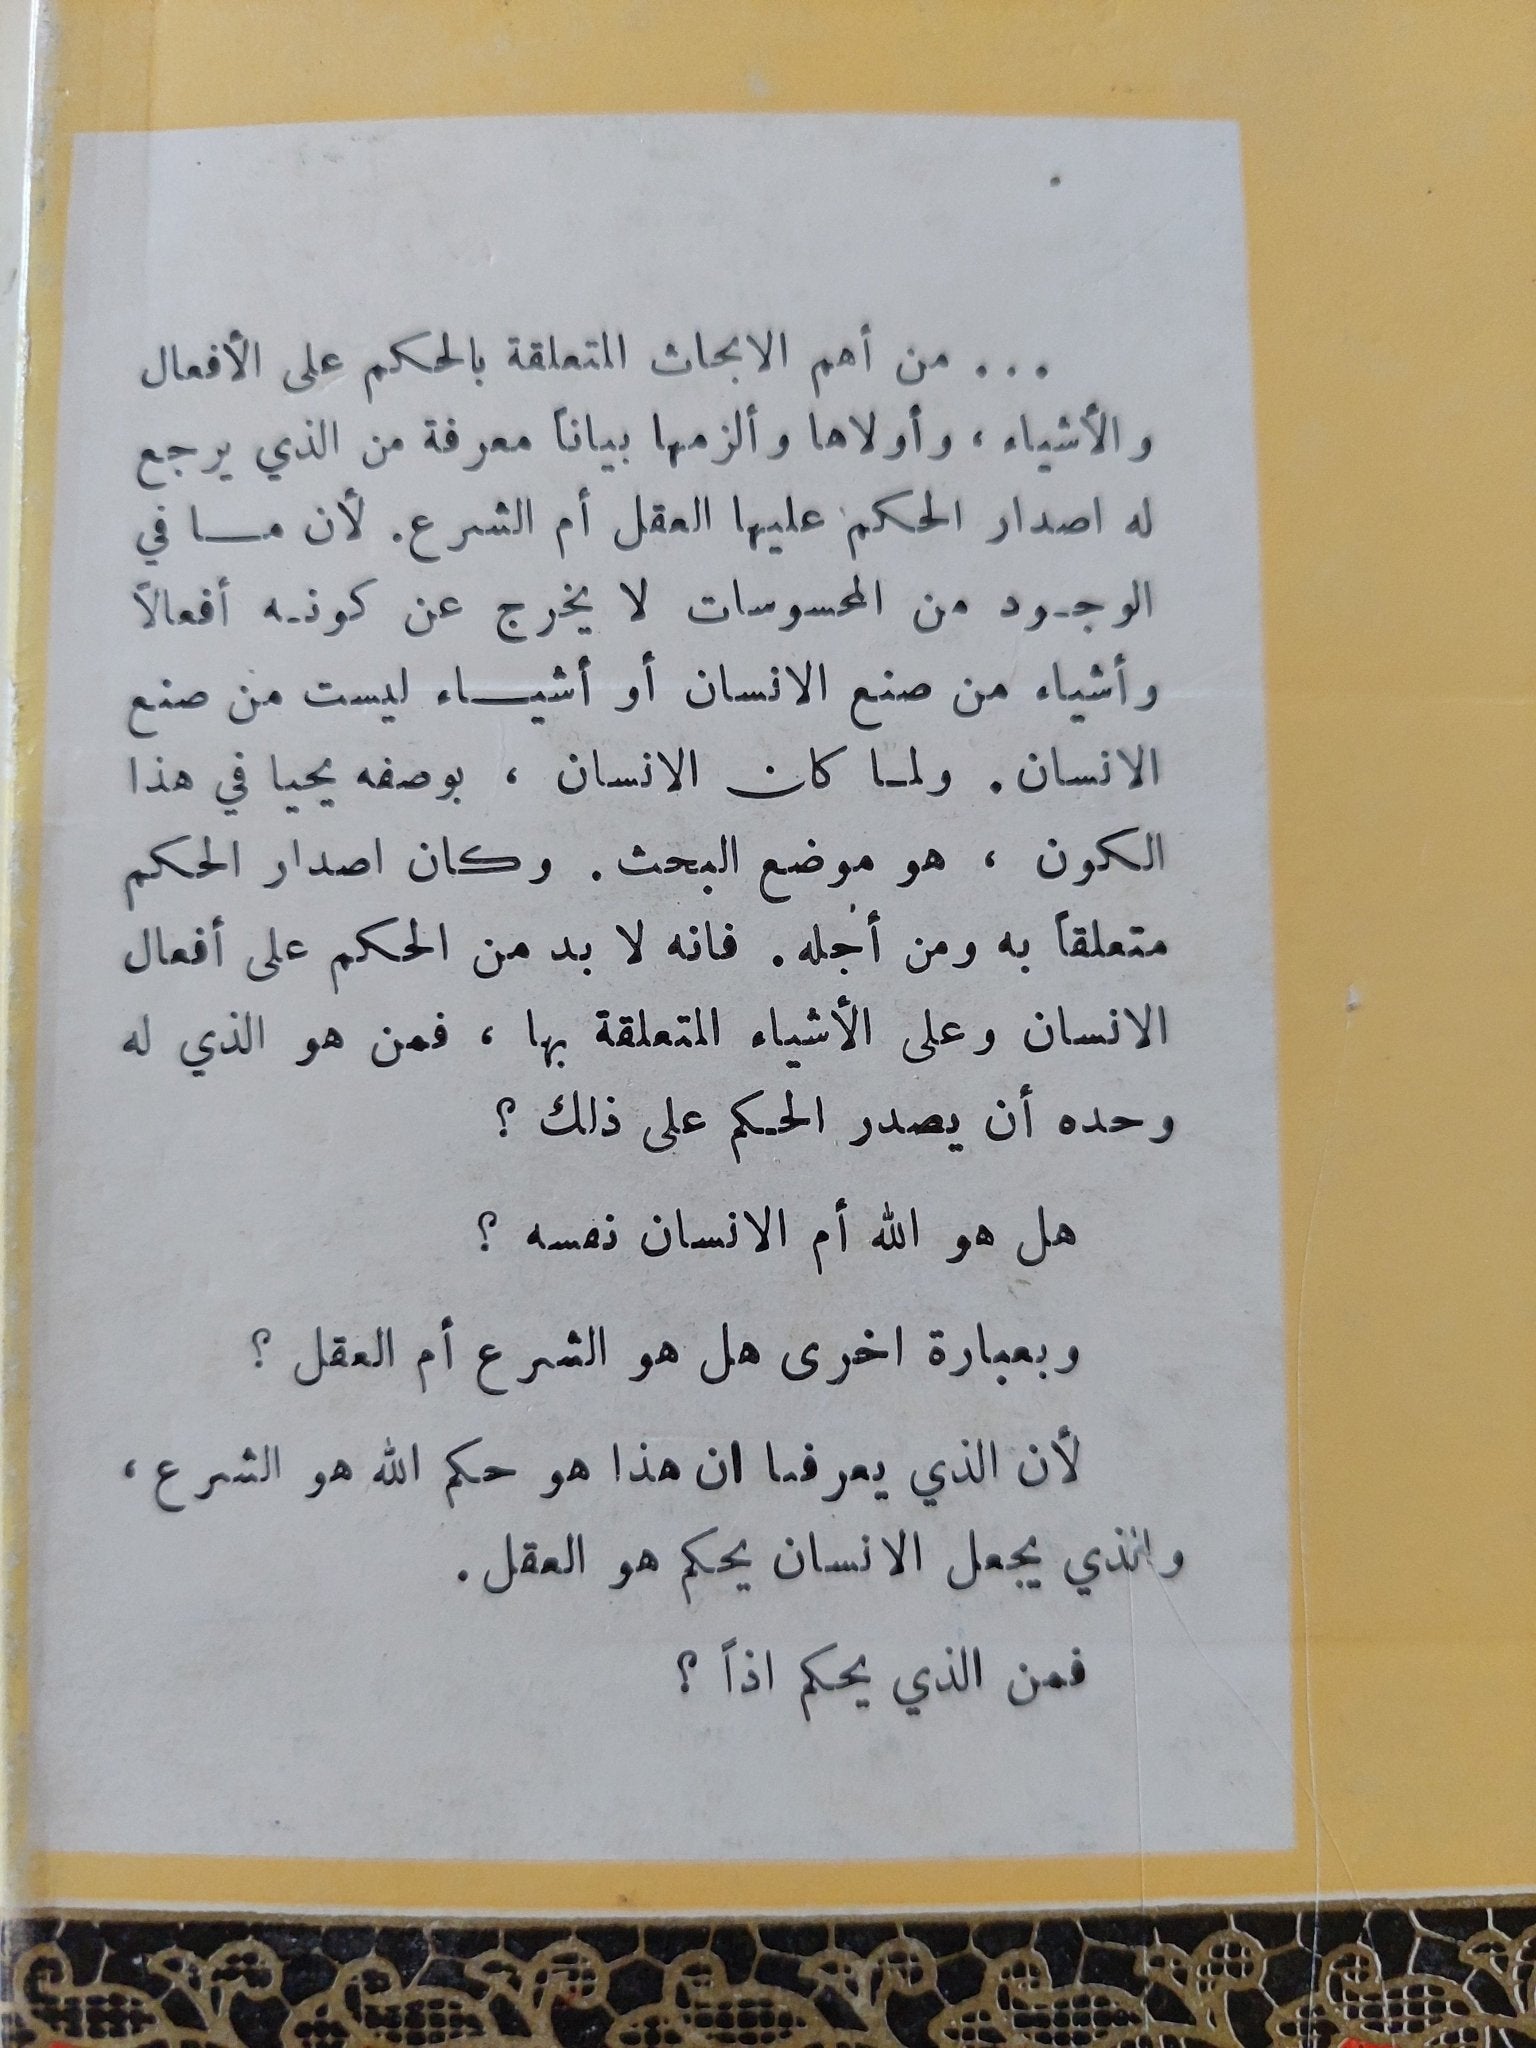 ... من أهم الابحاث المتعلقة بالحكم على الأفعال
والأشياء ، وأولاها وألزمها بياناً معرفة من الذي يرجع
له اصدار الحكم عليها العقل أم الشرع. لأن مـــا في
الوجـود من المحسوسات لا يخرج عن كونـه أفعالاً
وأشياء من صنع الانسان أو أشيـــاء ليست من صنع
الانسان. ولمـا كان الانسان ، بوصفه يحيا في هذا
الكون ، هو موضع البحث. وكان اصدار الحكم
متعلقاً به ومن أجله. فانه لا بد من الحكم على أفعال
الانسان وعلى الأشياء المتعلقة بها ، فمن هو الذي له
وحده أن يصدر الحـكم على ذلك ؟
هل هو الله أم الانسان نفسه ؟
وبعبارة اخرى هل هو الشرع أم العقل ؟
لأن الذي يعرفنا ان هذا هو حكم الله هو الشرع ،
والذي يجعل الانسان يحكم هو العقل.
فمن الذي يحكم اذاً ؟